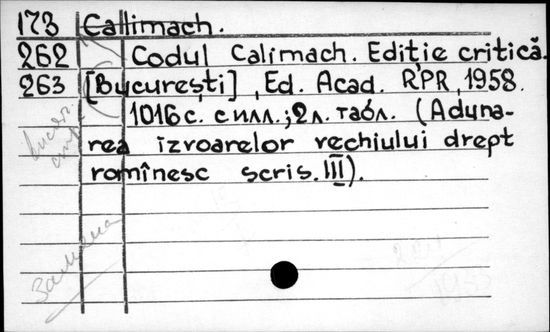 173 Callimach.
262 Codul Calimach. Ediție critică.
263 [București], Ed. Acad. RPR, 1958.
1016 с. с илл.; 2 л. табл. (Aduna-
rea izvoarelor vechiului drept
romînesc scris. III).
Замена